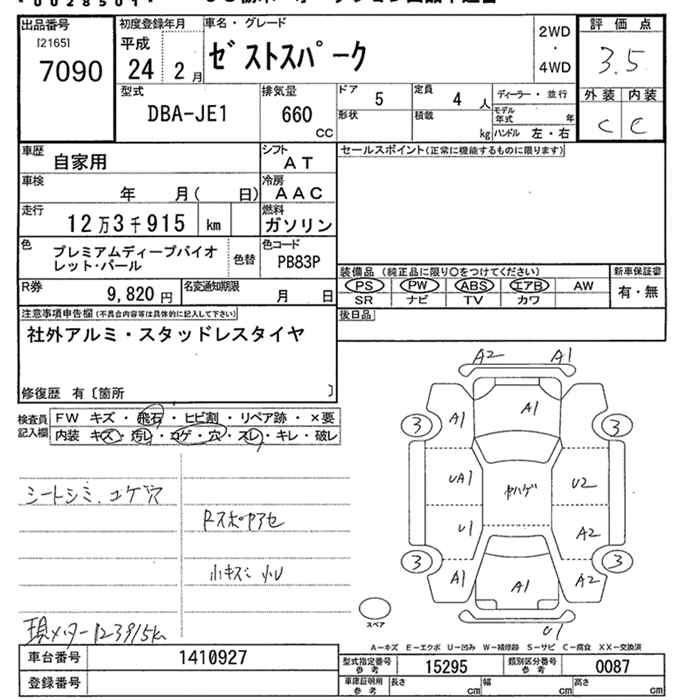 出品番号
[2165]
7090
初度登録年月
平成
24 2月
車名・グレード
ゼストスパーク
2WD
・
4WD
評価点
3.5
外装 内装
C C
型式
DBA-JE1
排気量
660
CC
ドア
5
定員
4 人
ディーラー・並行
モデル年式 年
形状
積載
kg
ハンドル 左・右
車歴
自家用
シフト
AT
セールスポイント(正常に機能するものに限ります)
車検
年 月( 日)
冷房
AAC
走行
12万3千915 km
燃料
ガソリン
色
プレミアムディープバイオ
レット・パール
色替
色コード
PB83P
装備品 (純正品に限り○をつけてください)
新車保証書
PS PW ABS エアB AW
SR ナビ TV カワ
有・無
R券
9,820 円
名変通知期限
月 日
後日品
注意事項申告欄(不具合内容等は具体的に記入して下さい)
社外アルミ・スタッドレスタイヤ
修復歴 有〔箇所 〕
検査員
記入欄
FW キズ・飛石・ヒビ割・リペア跡・×要
内装 キズ・汚レ・コゲ・穴・スレ・キレ・破レ
シートシミ、コゲ穴
小キズ 小U
現メーター123915km
A2 A1
A1 A1
3 3
UA1 ヤハゲ U2
U1 A2
3 3
A1 A1 A2
U1
スペア
A-キズ E-エクボ U-凹み W-補修跡 S-サビ C-腐食 XX-交換済
車台番号
1410927
登録番号
型式指定番号
参考
15295
類別区分番号
参考
0087
車庫証明用
参考
長さ cm
幅 cm
高さ cm